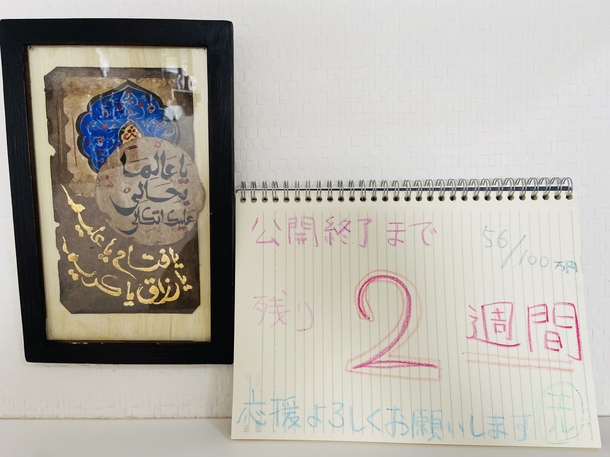 يا عالما
بحالي
عليك اتكالي
يا فتاح يا عليم
يا رزاق يا كريم
公開終了まで
56/100万円
残り 2 週間
応援よろしくお願いします